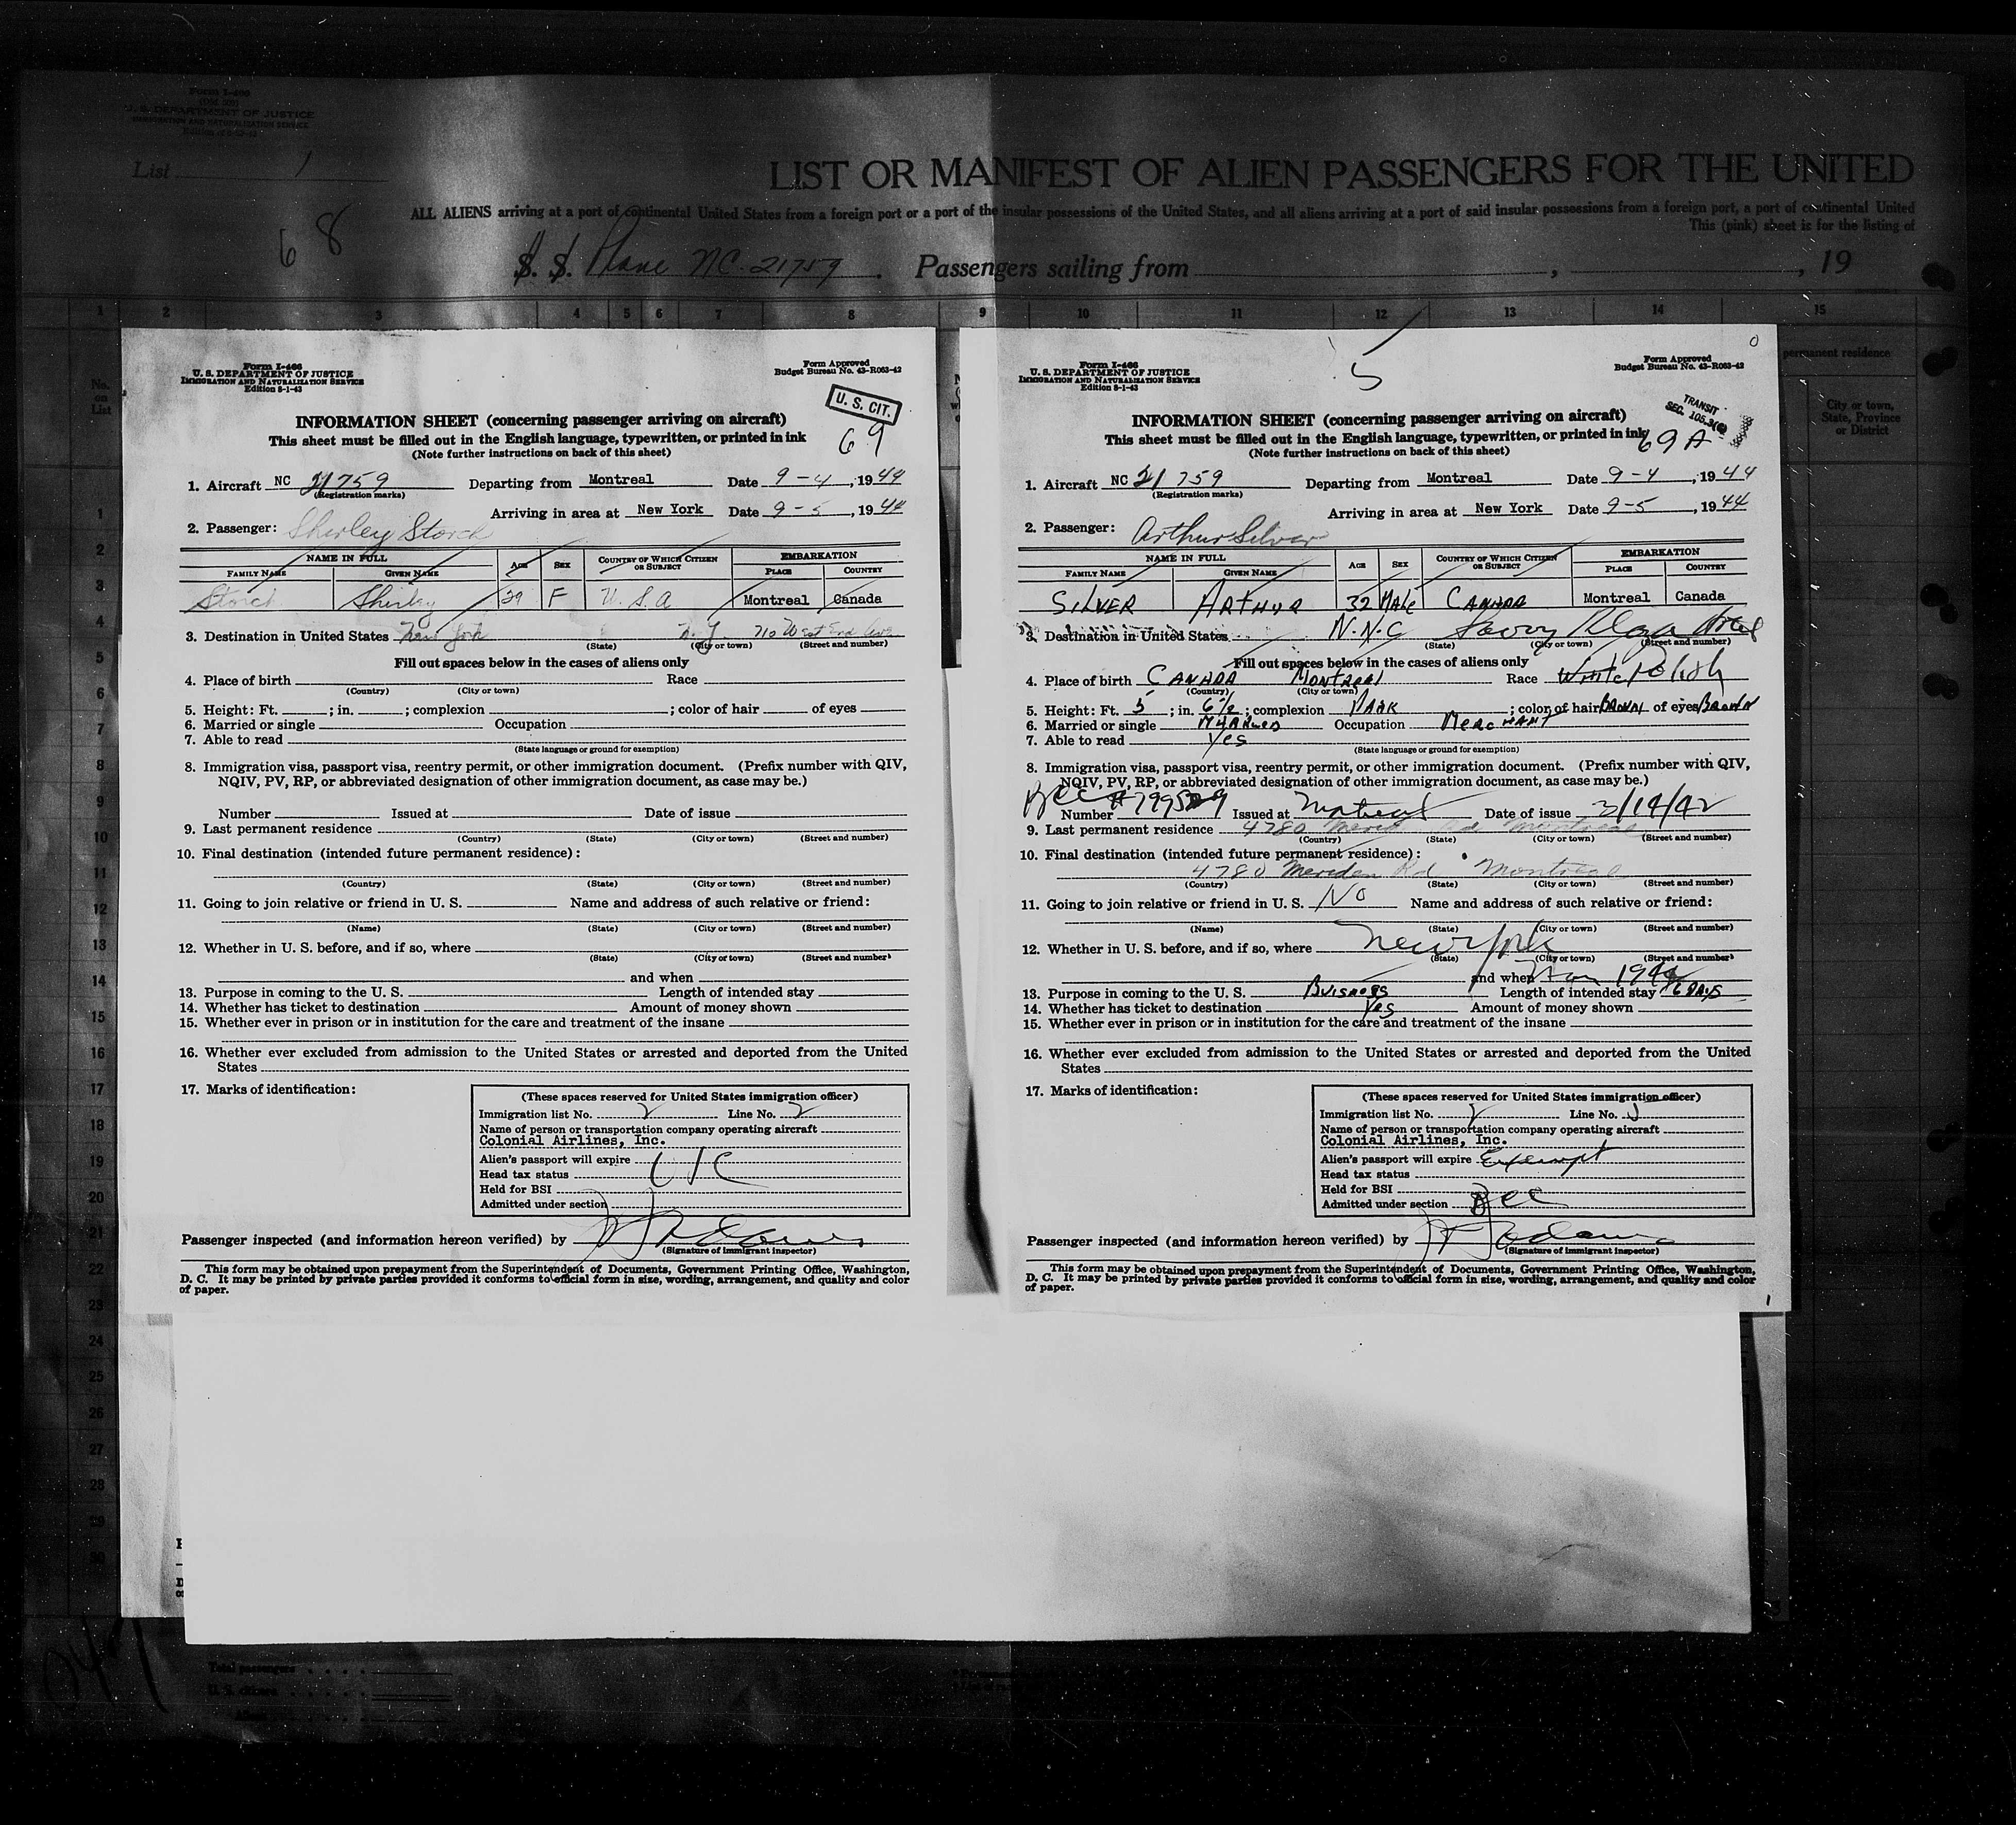 Form I-400
U. S. DEPARTMENT OF JUSTICE
IMMIGRATION AND NATURALIZATION SERVICE
List 1
LIST OR MANIFEST OF ALIEN PASSENGERS FOR THE UNITED
ALL ALIENS arriving at a port of continental United States from a foreign port or a port of the insular possessions of the United States, and all aliens arriving at a port of said insular possessions from a foreign port, a port of continental United
This (pink) sheet is for the listing of
68
S. S. Plane NC. 21759 . Passengers sailing from , , 19
1 2 3 4 5 6 7 8 9 10 11 12 13 14 15
permanent residence
No. on List
City or town, State, Province or District
Form I-466
U. S. DEPARTMENT OF JUSTICE
IMMIGRATION AND NATURALIZATION SERVICE
Edition 8-1-43
Form Approved
Budget Bureau No. 43-R063-42
U. S. CIT.
INFORMATION SHEET (concerning passenger arriving on aircraft)
This sheet must be filled out in the English language, typewritten, or printed in ink
69
(Note further instructions on back of this sheet)
1. Aircraft NC 21759 Departing from Montreal Date 9-4, 1944
(Registration marks)
Arriving in area at New York Date 9-5, 1944
2. Passenger: Shirley Storch
NAME IN FULL AGE SEX COUNTRY OF WHICH CITIZEN OR SUBJECT EMBARKATION
FAMILY NAME GIVEN NAME PLACE COUNTRY
Storch Shirley 29 F U.S.A Montreal Canada
3. Destination in United States New York N.Y. 710 West End Ave
(State) (City or town) (Street and number)
Fill out spaces below in the cases of aliens only
4. Place of birth Race
(Country) (City or town)
5. Height: Ft. ; in. ; complexion ; color of hair of eyes
6. Married or single Occupation
7. Able to read
(State language or ground for exemption)
8. Immigration visa, passport visa, reentry permit, or other immigration document. (Prefix number with QIV,
NQIV, PV, RP, or abbreviated designation of other immigration document, as case may be.)
Number Issued at Date of issue
9. Last permanent residence
(Country) (State) (City or town) (Street and number)
10. Final destination (intended future permanent residence):
(Country) (State) (City or town) (Street and number)
11. Going to join relative or friend in U. S. Name and address of such relative or friend:
(Name) (State) (City or town) (Street and number)
12. Whether in U. S. before, and if so, where
(State) (City or town) (Street and number)
and when
13. Purpose in coming to the U. S. Length of intended stay
14. Whether has ticket to destination Amount of money shown
15. Whether ever in prison or in institution for the care and treatment of the insane
16. Whether ever excluded from admission to the United States or arrested and deported from the United
States
17. Marks of identification:
(These spaces reserved for United States immigration officer)
Immigration list No. 2 Line No. 2
Name of person or transportation company operating aircraft
Colonial Airlines, Inc.
Alien's passport will expire
Head tax status
Held for BSI
Admitted under section
Passenger inspected (and information hereon verified) by
(Signature of immigrant inspector)
This form may be obtained upon prepayment from the Superintendent of Documents, Government Printing Office, Washington,
D. C. It may be printed by private parties provided it conforms to official form in size, wording, arrangement, and quality and color
of paper.
Form I-466
U. S. DEPARTMENT OF JUSTICE
IMMIGRATION AND NATURALIZATION SERVICE
Edition 8-1-43
5
Form Approved
Budget Bureau No. 43-R063-42
TRANSIT
SEC. 105.3
INFORMATION SHEET (concerning passenger arriving on aircraft)
This sheet must be filled out in the English language, typewritten, or printed in ink
69A
(Note further instructions on back of this sheet)
1. Aircraft NC 21759 Departing from Montreal Date 9-4, 1944
(Registration marks)
Arriving in area at New York Date 9-5, 1944
2. Passenger: Arthur Silver
NAME IN FULL AGE SEX COUNTRY OF WHICH CITIZEN OR SUBJECT EMBARKATION
FAMILY NAME GIVEN NAME PLACE COUNTRY
SILVER ARTHUR 32 MALE CANADA Montreal Canada
3. Destination in United States N.Y.C Savoy Plaza Hotel
(State) (City or town) (Street and number)
Fill out spaces below in the cases of aliens only
4. Place of birth CANADA MONTREAL Race White Polish
(Country) (City or town)
5. Height: Ft. 5 ; in. 6½ ; complexion DARK ; color of hair BROWN of eyes BROWN
6. Married or single MARRIED Occupation MERCHANT
7. Able to read Yes
(State language or ground for exemption)
8. Immigration visa, passport visa, reentry permit, or other immigration document. (Prefix number with QIV,
NQIV, PV, RP, or abbreviated designation of other immigration document, as case may be.)
BCC # Number Issued at Montreal Date of issue 3/14/42
9. Last permanent residence 4780 Rd Montreal
(Country) (State) (City or town) (Street and number)
10. Final destination (intended future permanent residence):
4780 Meriden Rd Montreal
(Country) (State) (City or town) (Street and number)
11. Going to join relative or friend in U. S. No Name and address of such relative or friend:
(Name) (State) (City or town) (Street and number)
12. Whether in U. S. before, and if so, where New York
(State) (City or town) (Street and number)
and when 1944
13. Purpose in coming to the U. S. Buisness Length of intended stay 6 DAYS
14. Whether has ticket to destination Yes Amount of money shown
15. Whether ever in prison or in institution for the care and treatment of the insane
16. Whether ever excluded from admission to the United States or arrested and deported from the United
States
17. Marks of identification:
(These spaces reserved for United States immigration officer)
Immigration list No. 2 Line No.
Name of person or transportation company operating aircraft
Colonial Airlines, Inc.
Alien's passport will expire Exempt
Head tax status
Held for BSI
Admitted under section BCC
Passenger inspected (and information hereon verified) by
(Signature of immigrant inspector)
This form may be obtained upon prepayment from the Superintendent of Documents, Government Printing Office, Washington,
D. C. It may be printed by private parties provided it conforms to official form in size, wording, arrangement, and quality and color
of paper.
1
2
3
4
5
6
7
8
9
10
11
12
13
14
15
16
17
18
19
20
21
22
23
24
25
26
27
28
29
30
Total passengers
U. S. citizens